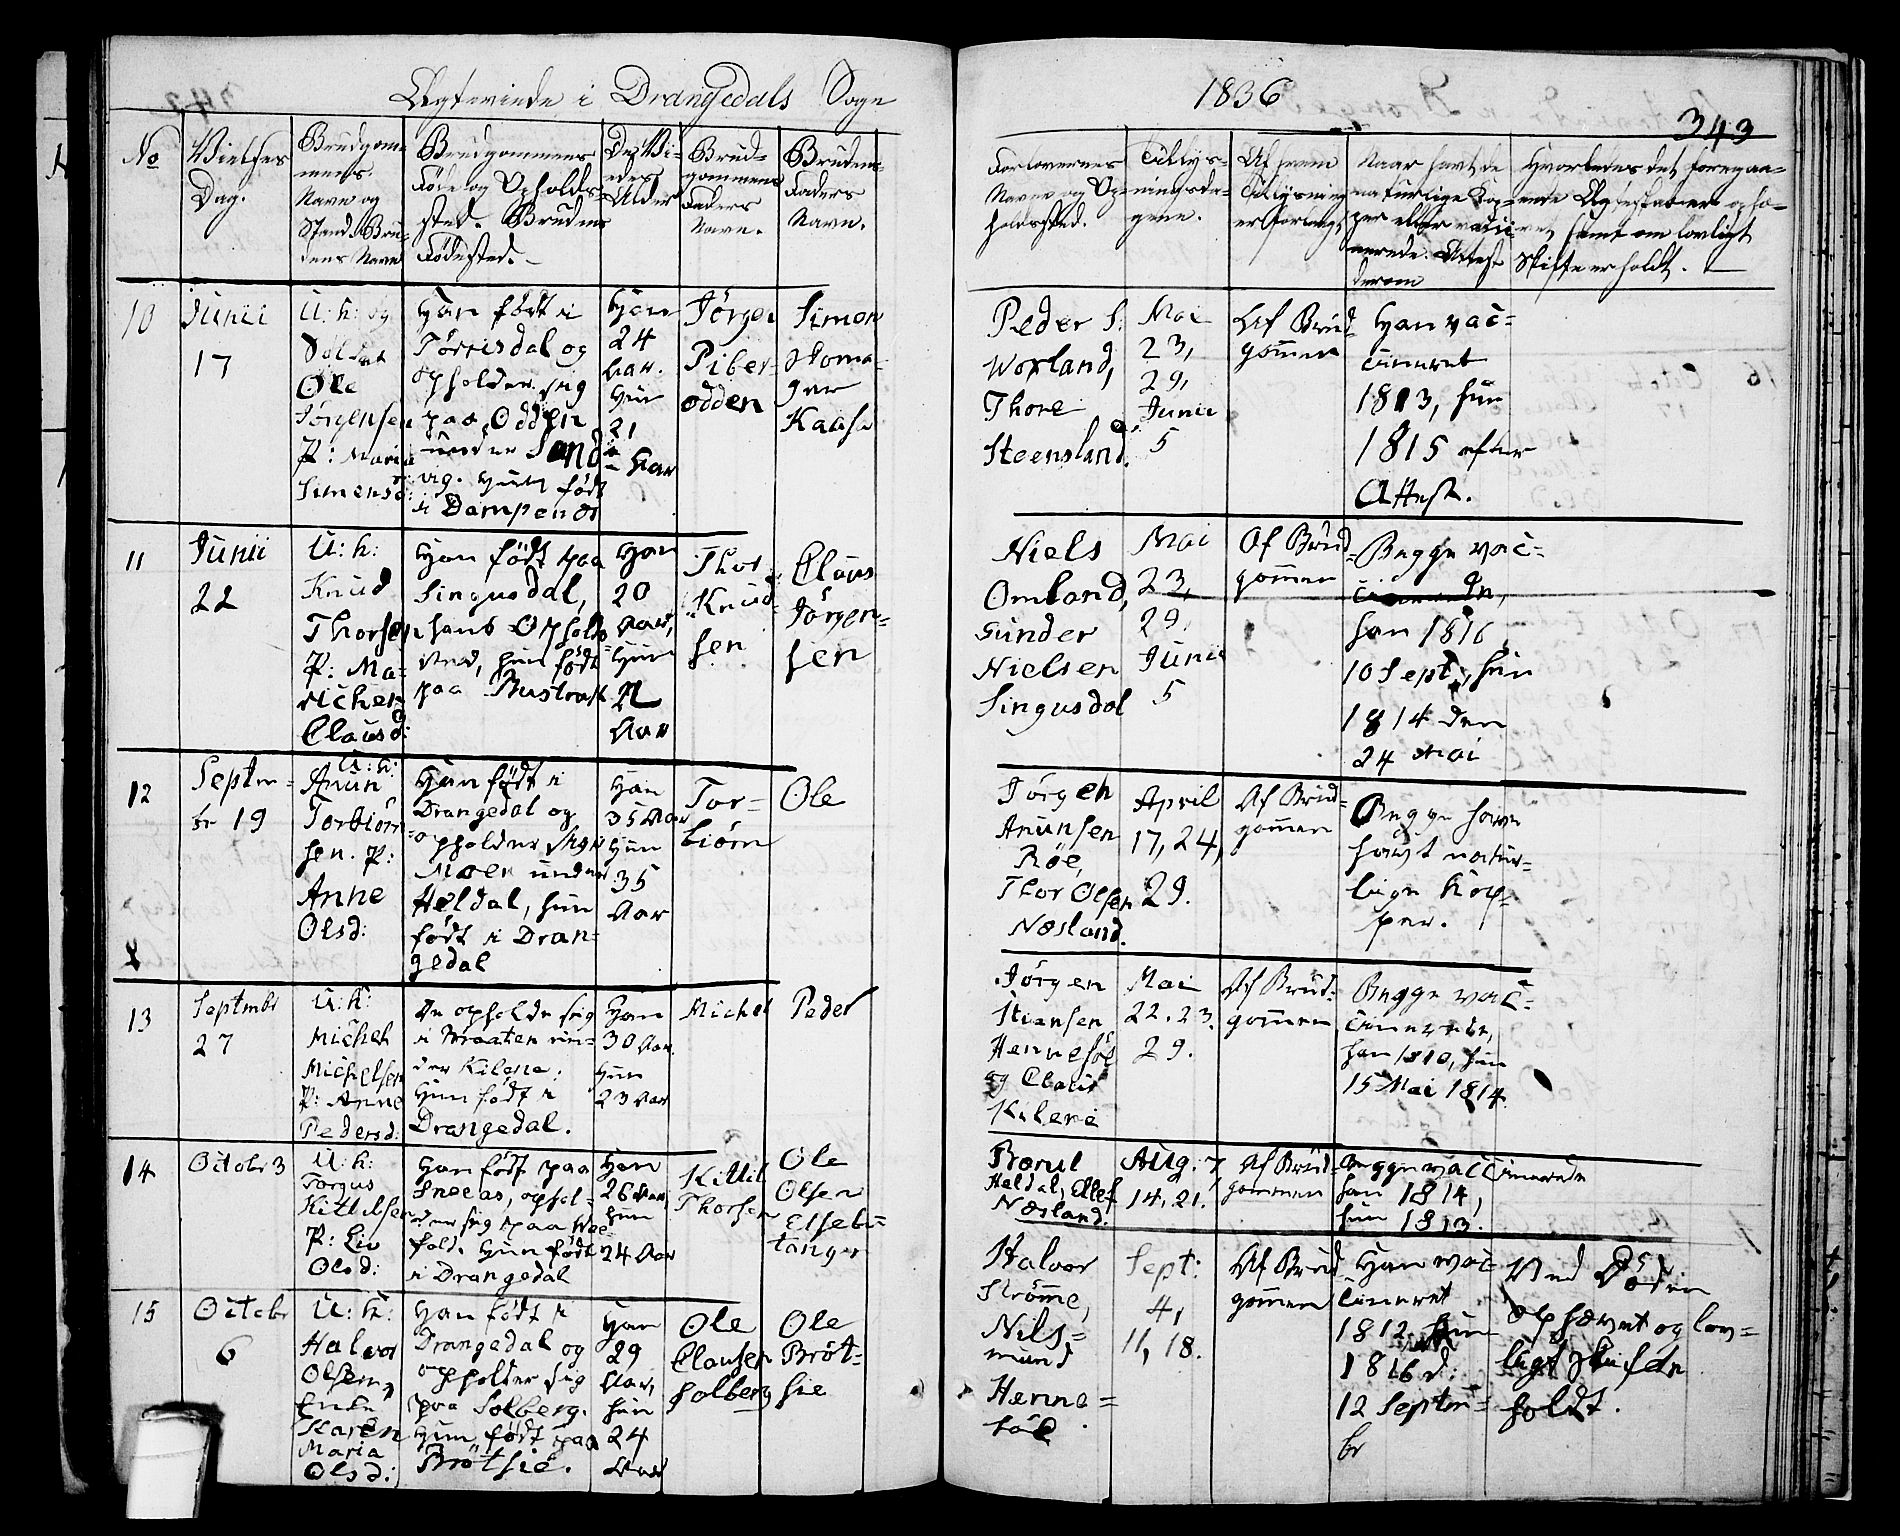 Ægteviede i Drangedals Sogn
1836
343
No
Vielses
Dag.
Brudgom-
mens
Navn og
Stand. Bru-
dens Navn
Brudgommens
Føde og Opholds-
sted. Brudens
Fødested.
De Vi-
edes
Alder
Brud-
gommens
Faders
Navn.
Brudens
Faders
Navn.
Forlovernes
Navne og Op-
holdssted.
Tillys-
ningsda-
gene.
Af hvem
Tillysning
er forlangt
Naar havt de
naturlige Kop-
per eller vacci-
nerede. Attest
derom
Hvorledes det foregaa-
ende Ægteskab er ophæ-
vet, samt om lovligt
Skifte er holdt.
10
Junii
17
U: K: og
Soldat
Ole
Jørgensen
P: Maria
Simensd:
Han født i
Tørrisdal og
opholder sig
paa Odden
under Sand
vig. Hun født
i Dampendr
Han
24
Aar.
Hun
21
Aar
Jørgen
Piber-
odden
Simon
Thoma-
sen
Kaasa
Peder S:
Voxland,
Thore
Steensland.
Mai
23,
29,
Junii
5
Af Brud-
gommen
Han vac-
cineret
1813, hun
1815 efter
Attest.
11
Junii
22
U: K:
Knud
Thorsen
P: Ma-
richen
Clausd:
Han født paa
Singusdal,
hans Opholds-
sted, hun født
paa Bustrak
Han
20
Aar,
Hun
22
Aar
Thor
Knud-
sen
Claus
Jörgen-
sen
Niels
Omland,
Gunder
Nielsen
Singusdal
Mai
23,
29.
Junii
5
Af Brud-
gommen
Begge vac-
cinerede,
han 1816
10 Sept:, hun
1814 den
24 Mai
12
Septem-
br 19
U: K:
Anun
Torbiörn-
sen. P:
Anne
Olsd:
Han født i
Drangedal og
opholder sig i
Moen under
Heldal, hun
født i Dran-
gedal
Han
35 Aar
Hun
35
Aar
Tor-
biörn
Ole
Jörgen
Anunsen
Röe,
Thor Olsen
Næsland.
April
17, 24,
29.
Af Brud-
gommen
Begge have
havt natur-
lige Kop-
per.
13
Septembr
27
U: K:
Michel
Michelsen
P: Anne
Pedersd:
De opholde sig
i Braaten un-
der Kilene.
Hun født i
Drangedal.
Han
30 Aar.
Hun
23 Aar
Michel
Peder
Jörgen
Stiansen
Henneföe
og Claus
Kilene
Mai
22. 23.
29.
Af Brud-
gommen
Begge vac-
cinerede,
han 1810, hun
15 Mai 1814.
14
Octobr 3
U: K:
Torgus
Kittilsen
P: Liv
Olsd:
Han født paa
Sneeas, ophol-
der sig paa Vee
fald. Hun født
i Drangedal
Han
26 Aar,
Hun
24 Aar
Kittil
Thorsen
Ole
Olsen
Elsebu-
tangen
Borul
Heldal, Ellef
Næsland.
Aug: 7,
14, 21.
Af Brud-
gommen
Begge vaccinerede
han 1814,
hun 1813.
15
Octobr
6
U: K:
Halvor
Olsen,
Enke
Karen
Maria
Olsd:
Han født i
Drangedal og
opholder sig
paa Solberg.
Hun født paa
Brötsie.
Han
29
Aar,
hun
24
Aar
Ole
Clausen
Solberg
Ole
Bröt-
sie
Halvor
Strömme,
Nils-
mund
Henne-
föe
Sept:
4,
11, 18.
Af Brud
gommen
Han vac-
cineret
1812, Hun
1816 d:
12 Septem-
br
Ved Döden
ophævet og lov-
ligt Skifte
holdt.